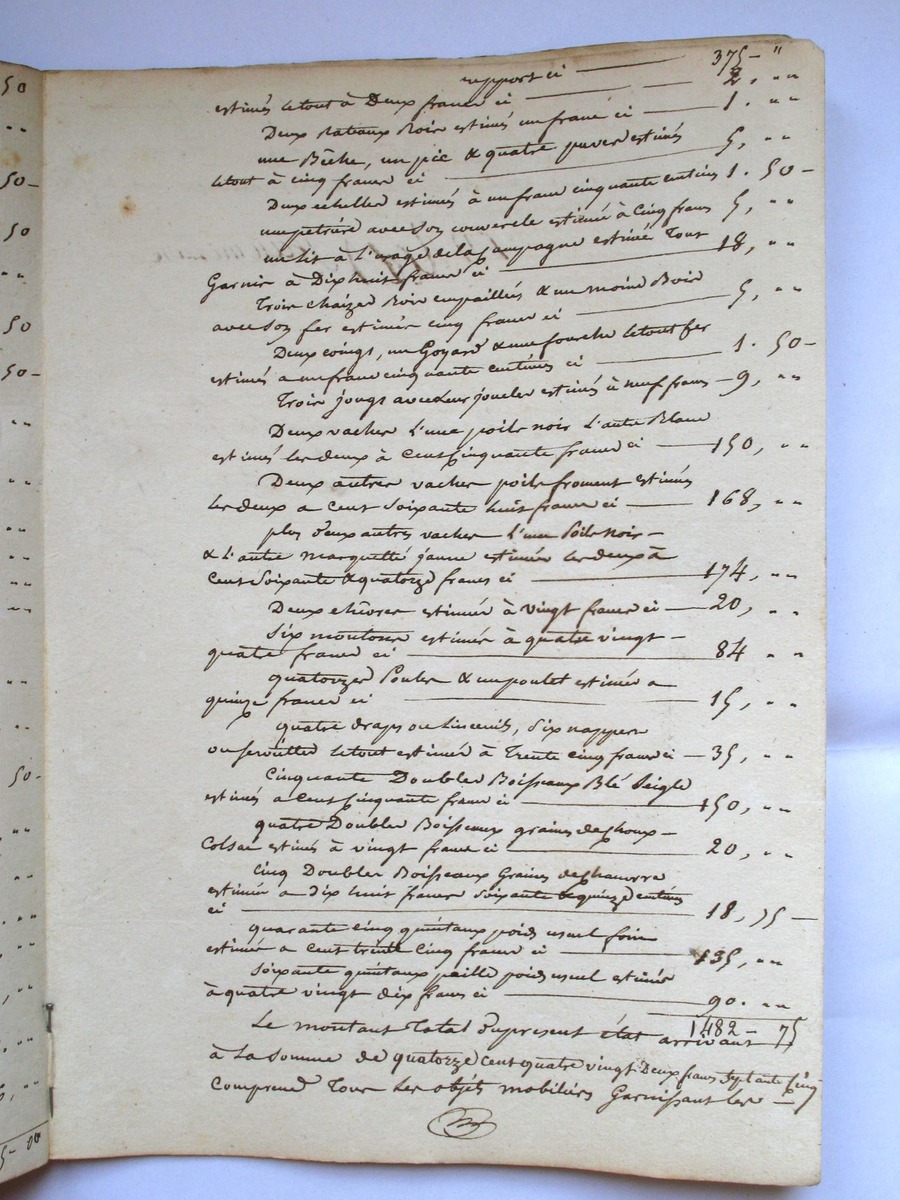 50
" "
50 -
50
" "
50
50 -
" "
50 -
5 - 00
report ci — 375 - "
estimés letout à Deux francs ci — 2, " "
Deux rataux Bois estimés un franc ci — 1 . " "
une Bêche, un pic & quatre estimés
letout à cinq francs ci — 5, " "
Deux echelles estimés à un franc cinquante centimes 1 . 50 -
une petrière avec son couvercle estimée à Cinq francs 5, " "
un lit à l'usage de la Campagne estimé Tout
Garnis à Dix huit francs ci — 18, " "
Trois chaizes Bois empaillés & un moine Bois
avec son fer estimés cinq francs ci — 5, " "
Deux coings, un Goyard & une fourche letout fer
estimés a un franc cinquante centimes ci — 1 . 50 -
Trois jougs avec leurs joucles estimés à neuf francs - 9, " "
Deux vaches l'une poils noir l'autre Blanc
estimés les deux à Cent Cinquante francs ci — 150, " "
Deux autres vaches poils froment estimés
les deux a Cent Soixante huit francs ci — 168, " "
plus deux autres vaches l'une Poils noir -
& l'autre marquetté jaune estimées les deux à
Cent Soixante & quatorze francs ci — 174, " "
Deux chèvres estimées à vingt francs ci — 20, " "
Six moutons estimés à quatre vingt -
quatre francs ci — 84 " "
quatorzes Poules & un poulet estimés a
quinze francs ci — 15, " "
quatre draps ou linceuils, Six nappes
ou servittes letout estimés à Trente cinq francs ci - 35, " "
Cinquante Doubles Boisseaux Blé Seigle
estimés a Cent Cinquante francs ci — 150, " "
quatre Doubles Boisseaux graines de Choux -
Colsac estimés à vingt francs ci — 20, " "
Cinq Doubles Boisseaux Graines de Chanvre
estimés a Dix huit francs Soixante & quinze centimes
ci — 18, 75 —
quarante cinq quintaux poids usuel foin
estimés a Cent trente Cinq francs ci — 135, " "
Soixante quintaux paille poids usuel estimés
à quatre vingt dix francs ci — 90 . " "
1482 - 75
Le montant Total du present état arrivant
à la Somme de quatorze Cent quatre vingt Deux francs Septante Cinq
Comprend Tous les objets mobiliers Garnissant les —